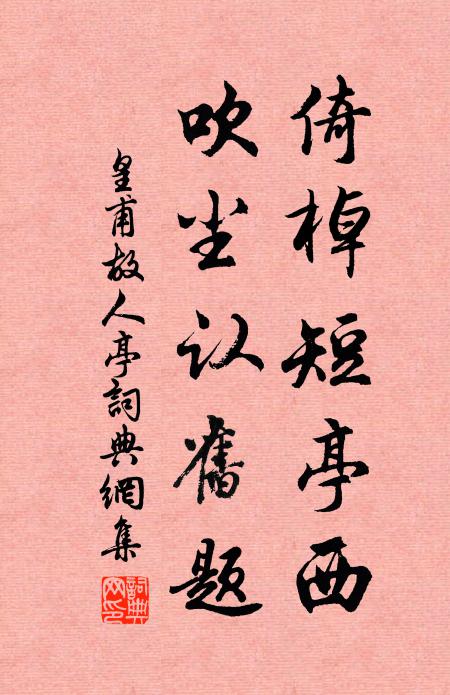 倚棹短亭西
吹尘认舊题
皇甫故人亭詞典網集
詞典網印